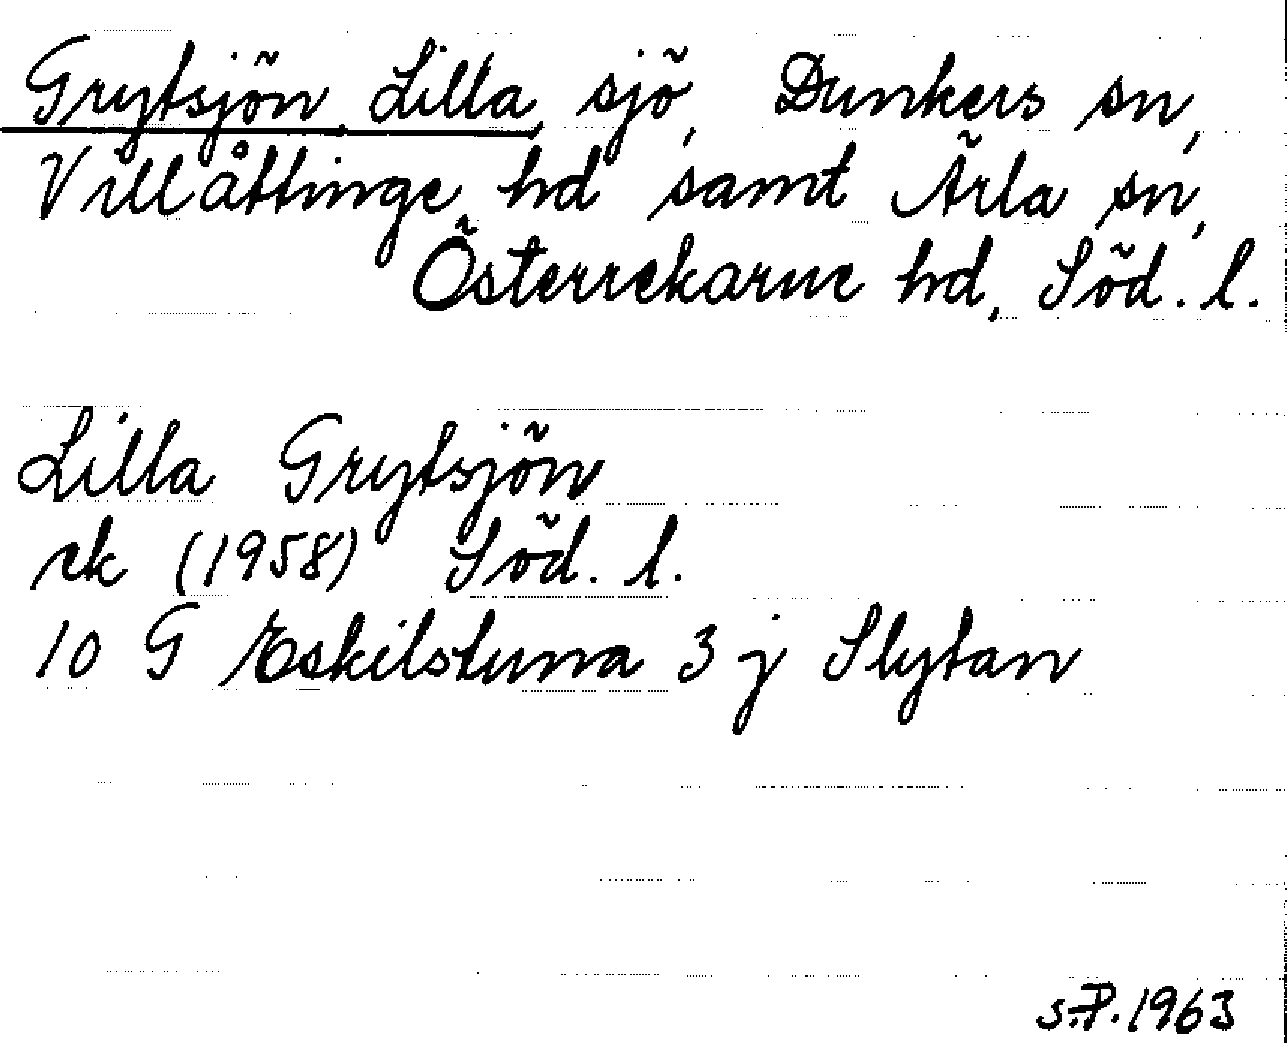 Grytsjön, Lilla, sjö, Dunkers sn,
Villåttinge hd samt Ärla sn,
Österrekarne hd, Söd. l.
Lilla Grytsjön
rk (1958) Söd. l.
10 G Eskilstuna 3 j Slytan
S.P. 1963